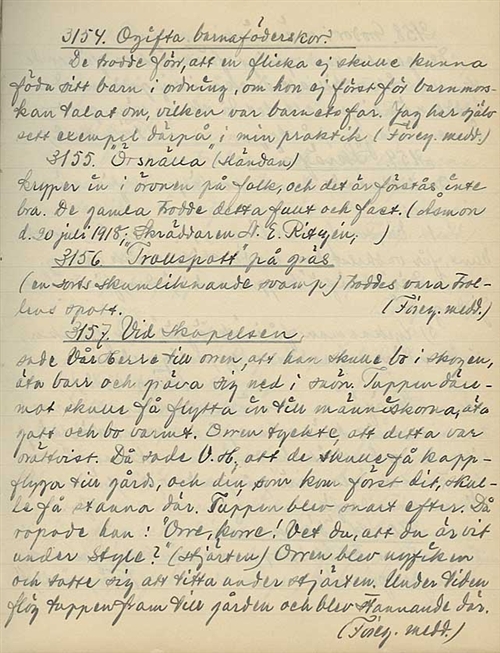 3154. Ogifta barnaföderskor.
De trodde för, att en flicka ej skulle kunna
föda sitt barn i ordning, om hon ej först för barnmors-
kan talat om, vilken var barnets far. Jag har själv
sett exempel därpå i min praktik (Föreg. medd.)
3155. "Örsnälla" (sländan)
kryper in i öronen på folk, och det är förstås inte
bra. De gamla trodde detta fullt och fast. (Åsmon
d. 20 juli 1918; Skräddaren N. E. )
3156 "Trollspott" på gräs
(en sorts skumliknande svamp) troddes vara trol-
lens spott. (Föreg. medd.)
3157. Vid Skapelsen,
sade Vår Herre till orren, att han skulle bo i skogen,
äta barr och gräva sig ned i snön. Tuppen däre-
mot skulle få flytta in till människorna, äta
gott och bo varmt. Orren tyckte, att detta var
orättvist. Då sade V. H, att de skulle få kapp-
flyga till gårds, och den, som kom först dit, skul-
le få stanna där. Tuppen blev snart efter. Då
ropade han: "Orre, korre! Vet du, att du är vit
under Style? (stjärten) Orren blev nyfiken
och satte sig att titta under stjärten. Under tiden
flög tuppen fram till gården och blev stannande där.
(Föreg. medd.)